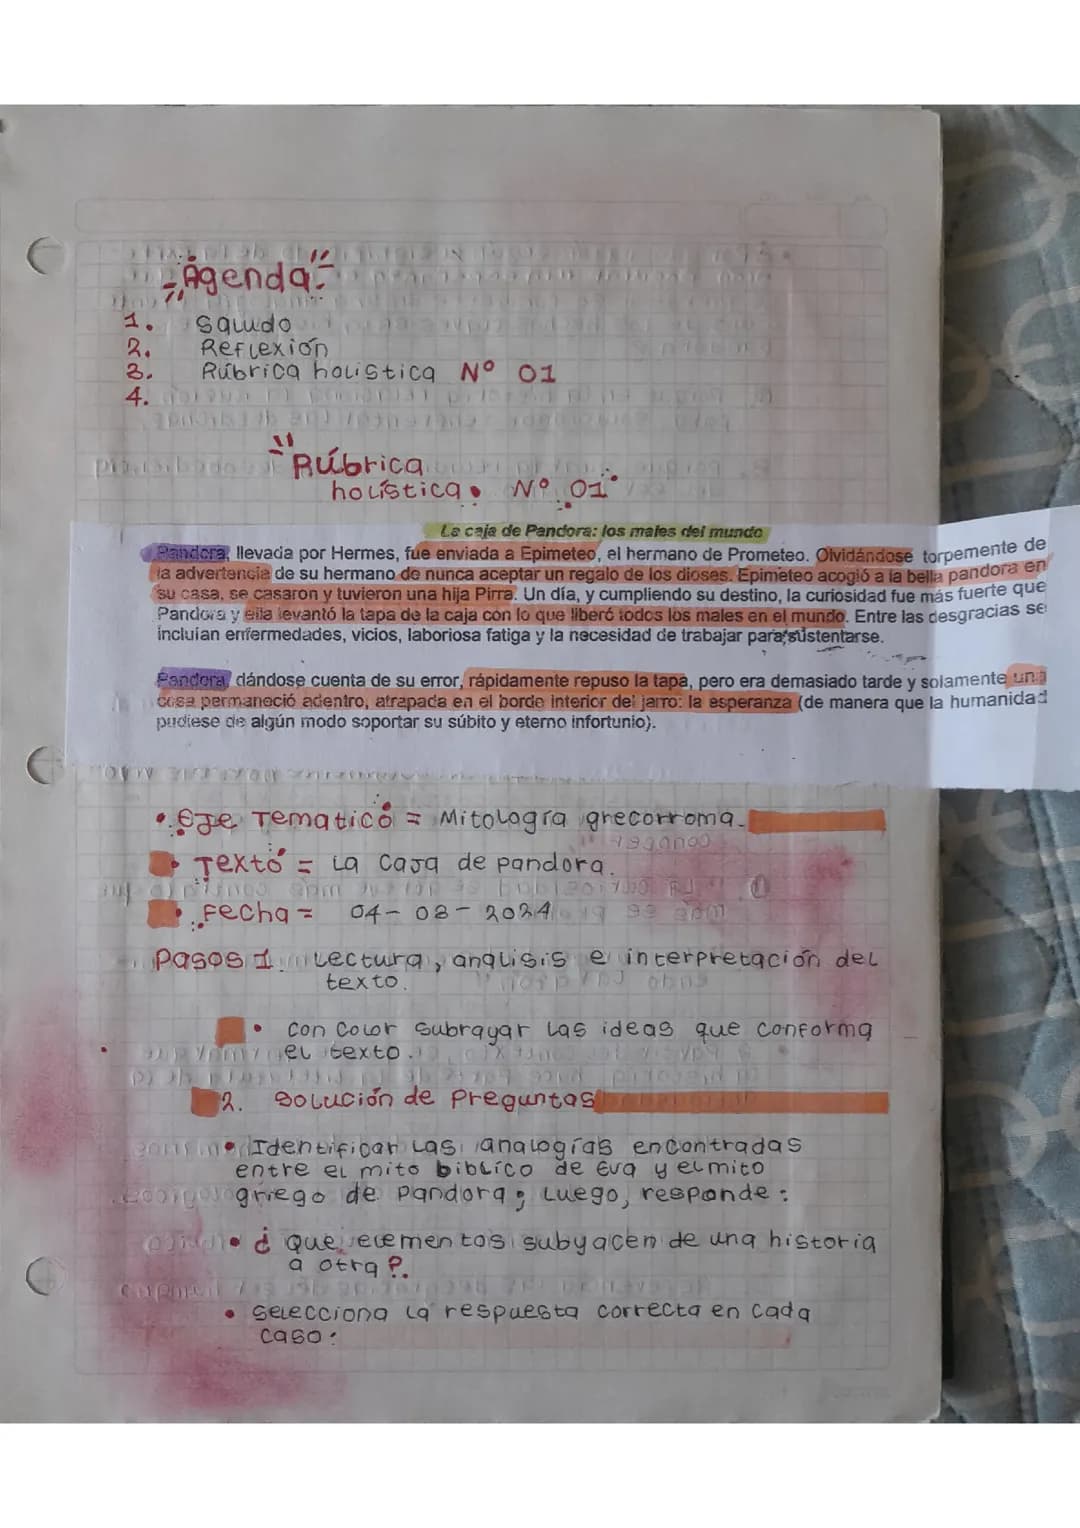 Agenda
1. Saludo
2. Reflexión
3. Rúbrica holistica Nº 01
4.
Rúbrica
holística. Nº 01
La caja de Pandora: los males del mundo
Pandora, llevada por Hermes, fue enviada a Epimeteo, el hermano de Prometeo. Olvidándose torpemente de
la advertencia de su hermano de nunca aceptar un regalo de los dioses. Epimeteo acogió a la bella pandora en
su casa, se casaron y tuvieron una hija Pirra. Un día, y cumpliendo su destino, la curiosidad fue más fuerte que
Pandora y ella levantó la tapa de la caja con lo que liberó todos los males en el mundo. Entre las desgracias se
incluían enfermedades, vicios, laboriosa fatiga y la necesidad de trabajar para sustentarse.
Pandora, dándose cuenta de su error, rápidamente repuso la tapa, pero era demasiado tarde y solamente una
cosa permaneció adentro, atrapada en el borde interior del jarro: la esperanza (de manera que la humanidad
pudiese de algún modo soportar su súbito y eterno infortunio).
• Eje Tematico = Mitología grecorroma.
• Texto = La Caja de pandora.
• Fecha = 04-08-2024
Pasos 1. Lectura, analisis e interpretación del
texto.
• Con Color Subrayar las ideas que conforma
el texto.
2. Solución de Preguntas
• Identificar Las analogías encontradas
entre el mito biblico de Eva y el mito
griego de Pandora; Luego, responde:
• ¿ que elementos subyacen de una historia
a otra ?.
• Selecciona la respuesta correcta en cada
caso: